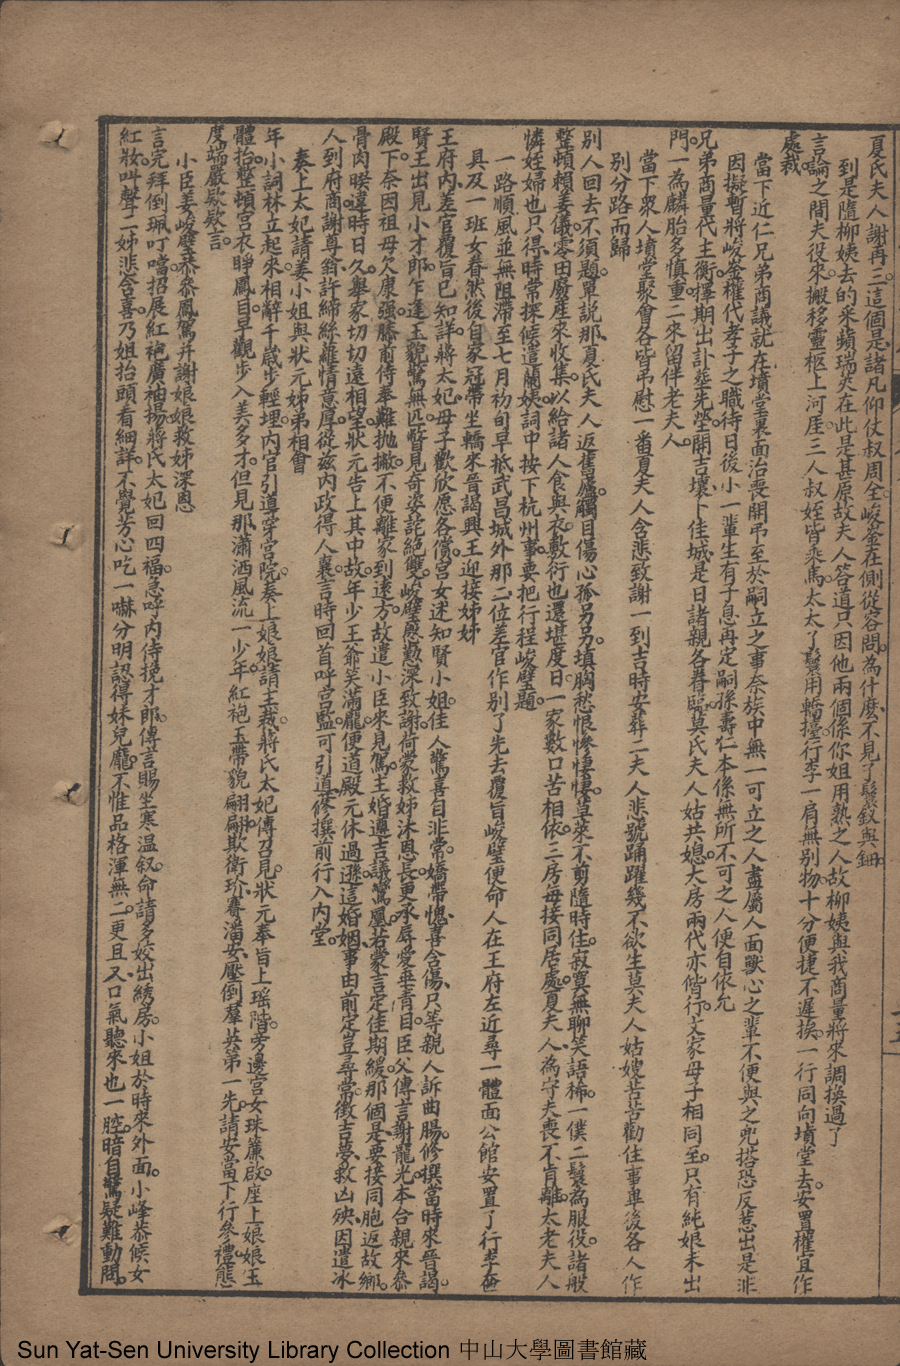 夏氏夫人謝再三這個是諸凡仰仗叔周全峻崟在側從容問為什麼不見了鬟釵與鈿
到是隨柳姨去的米蘋瑞炎在此是甚原故夫人答道只因他兩個係你姐用熟之人故柳姨與我商量將來調換過了
言論之間夫役來搬移靈柩上河厓三人叔姪皆乘馬太太丫鬟用轎擡行李一肩無別物十分便捷不遲挨一行同向墳堂去安置權宜作
處裁
當下近仁兄弟商議就在墳堂裏面治喪開弔至於嗣立之事奈族中無一可立之人盡屬人面獸心之輩不便與之兜搭恐反惹出是非
因擬暫將峻崟權代孝子之職待日後小一輩生有子息再定嗣孫壽仁本係無所不可之人便自依允
兄弟商量代主衡擇期出訃塋先塋開吉壤卜佳城是日諸親各眷臨莫氏夫人姑共媳大房兩代亦偕行文家母子相同至只有純娘未出
門一為麟胎多慎重二來留伴老夫人
當下衆人墳堂聚會各皆弔慰一番夏夫人含悲致謝一到吉時安葬二夫人悲號踊躍幾不欲生莫夫人姑嫂苦苦勸住事畢後各人作
別分路而歸
別人回去不須題單說那夏氏夫人返舊廬觸目傷心孫另另填胸愁恨慘悽悽草萊不剪隨時住寂寞無聊笑語稀一僕二鬟為服役諸般
整頓賴姜儀零田廢產來收集以給諸人食與衣敷衍也還堪度日一家數口苦相依三房每接同居處夏夫人為守夫喪不肯離太老夫人
憐姪婦也只得時常探候這蘭姨詞中按下杭州事要把行程峻壁題
一路順風並無阻滯至七月初旬早抵武昌城外那二位差官作別了先去覆旨峻壁便命人在王府左近尋一體面公館安置了行李每
具及一班女眷然後自家冠帶坐轎來晉謁興王迎接姊姊
王府內差官覆旨已知詳將太妃母子歡欣愿各償宮女迷知賢小姐佳人驚喜自非常嬌帶愧喜含傷只等親人訴曲腸修撰當時來晉謁
賢王出見小才郎乍逢玉貌驚無匹瞥見奇姿詫絕雙峻壁慇懃深致謝荷蒙救姊沐恩長更承辱愛垂青目臣父傳言謝龍光本合親來叅
殿下奈因祖母欠康强膝前侍奉難抛撇不便離家到遠方故遣小臣來見駕主婚遵吉議鸞凰若蒙言定佳期緩那個是要接同胞返故鄉
骨肉暌違時日久舉家切切遠相望狀元告上其中故年少王爺笑滿龐便道殿元休過遜這婚姻事由前定豈尋常徵吉夢救凶殃因遣冰
人到府商謝尊翁許締絲蘿情意厚從兹內政得人襄言時回首呼宮監可引道修撰前行入內堂
奏上太妃請姜小姐與狀元姊弟相會
年小詞林立起來相辭千歲步輕埋內官引導穿宮院奏上娘娘請主裁蔣氏太妃傳召見狀元奉旨上瑶階旁邊宮女珠簾啟座上娘娘玉
體抬整頓宮衣睜鳳目早觀步入美多才但見那瀟洒風流一少年紅袍玉帶貌翩翩欺衛玠賽潘安壓倒羣英第一先請安當下行參禮態
度端嚴欵欵言
小臣姜峻壁恭叅鳳駕并謝娘娘救姊深恩
言完拜倒珮叮噹招展紅袍廣袖揚蔣氏太妃回四福急呼內侍挽才郎傳言賜坐寒溫叙命請多姣出綉房小姐於時來外面小峰恭候女
紅妝叫聲二姊悲含喜乃姐抬頭看細詳不覺芳心吃一嚇分明認得妹兒龐不惟品格渾無二更且又口氣聽來也一腔暗自驚疑難動問
Sun Yat-Sen University Library Collection 中山大學圖書館藏